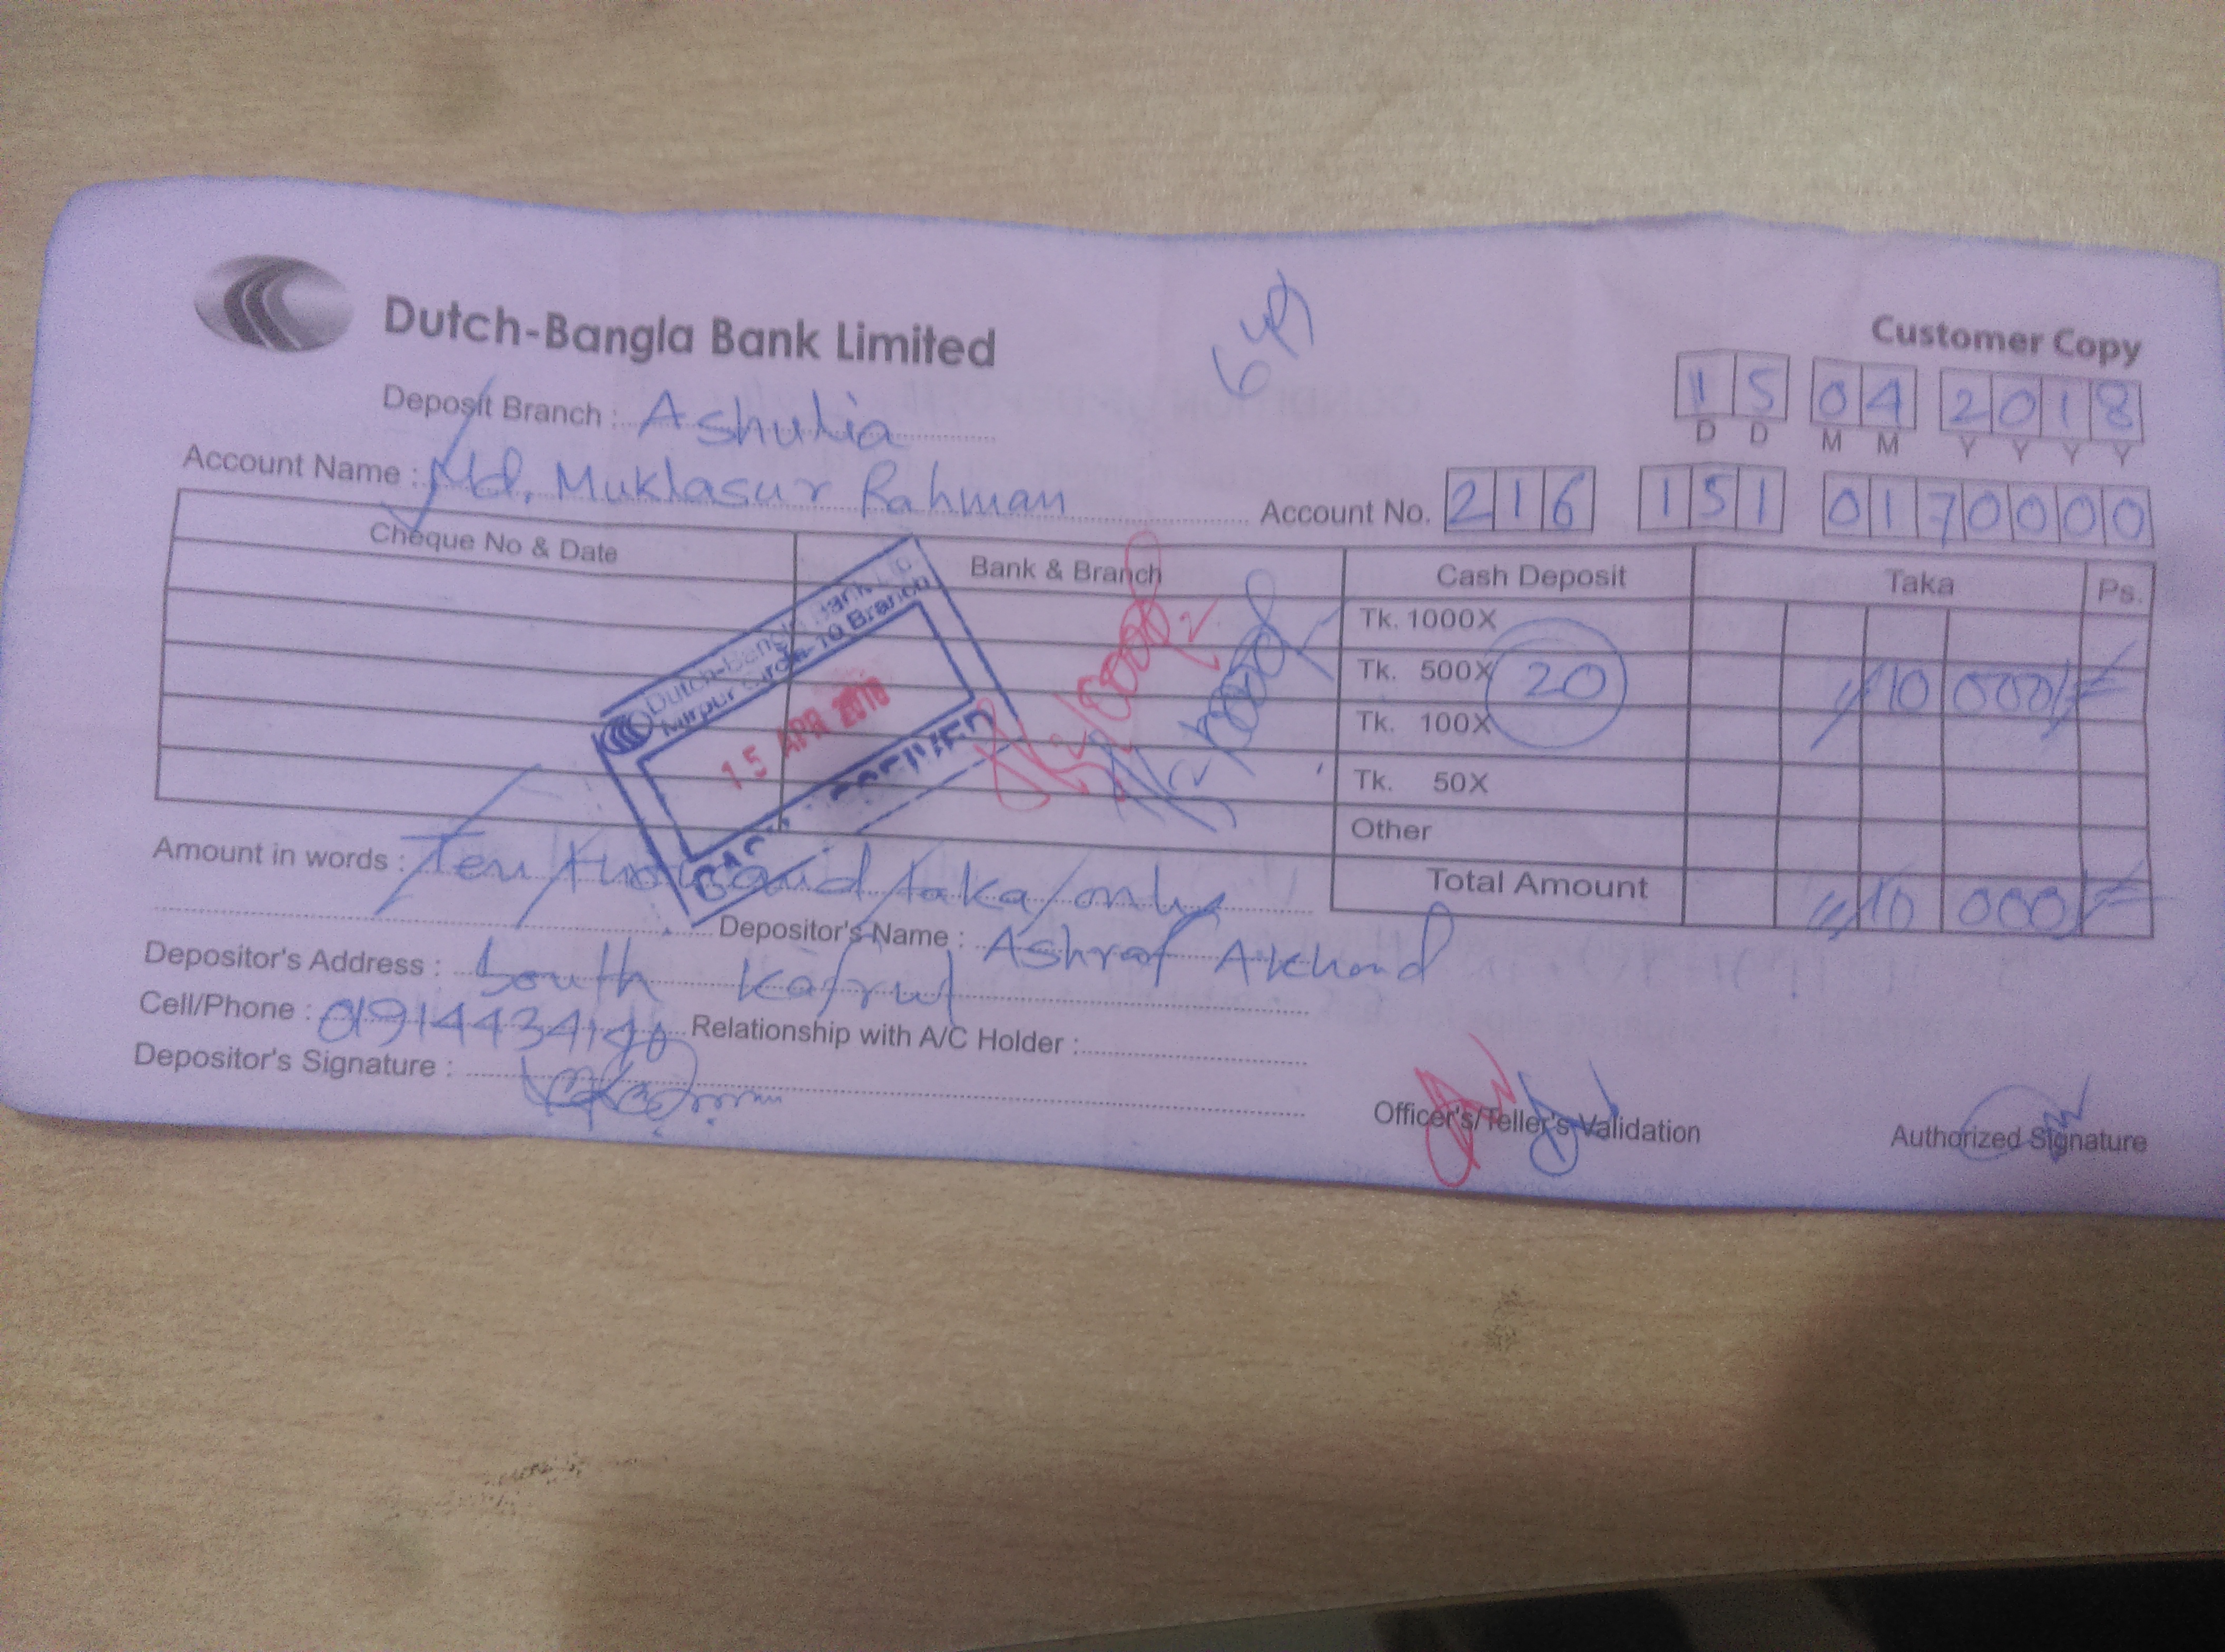 Dutch-Bangla Bank Limited
Customer Copy
Deposit Branch : Ashulia
15 04 2018
D D M M Y Y Y Y
Account Name : Md. Muklasur Rahman Account No. 216 151 0170000
Cheque No & Date Bank & Branch Cash Deposit Taka Ps.
Tk. 1000X
Tk. 500X 20 10 000/=
Tk. 100X
Tk. 50X
Other
Total Amount 10 000/=
Dutch-Bangla Bank Ltd
Mirpur Circle-10 Branch
15 APR 2018
CASH RECEIVED
Amount in words : Ten thousand taka only
Depositor's Name : Ashraf Akhond
Depositor's Address : South Kafrul
Cell/Phone : 01914434140 Relationship with A/C Holder :
Depositor's Signature :
Officer's/Teller's Validation Authorized Signature